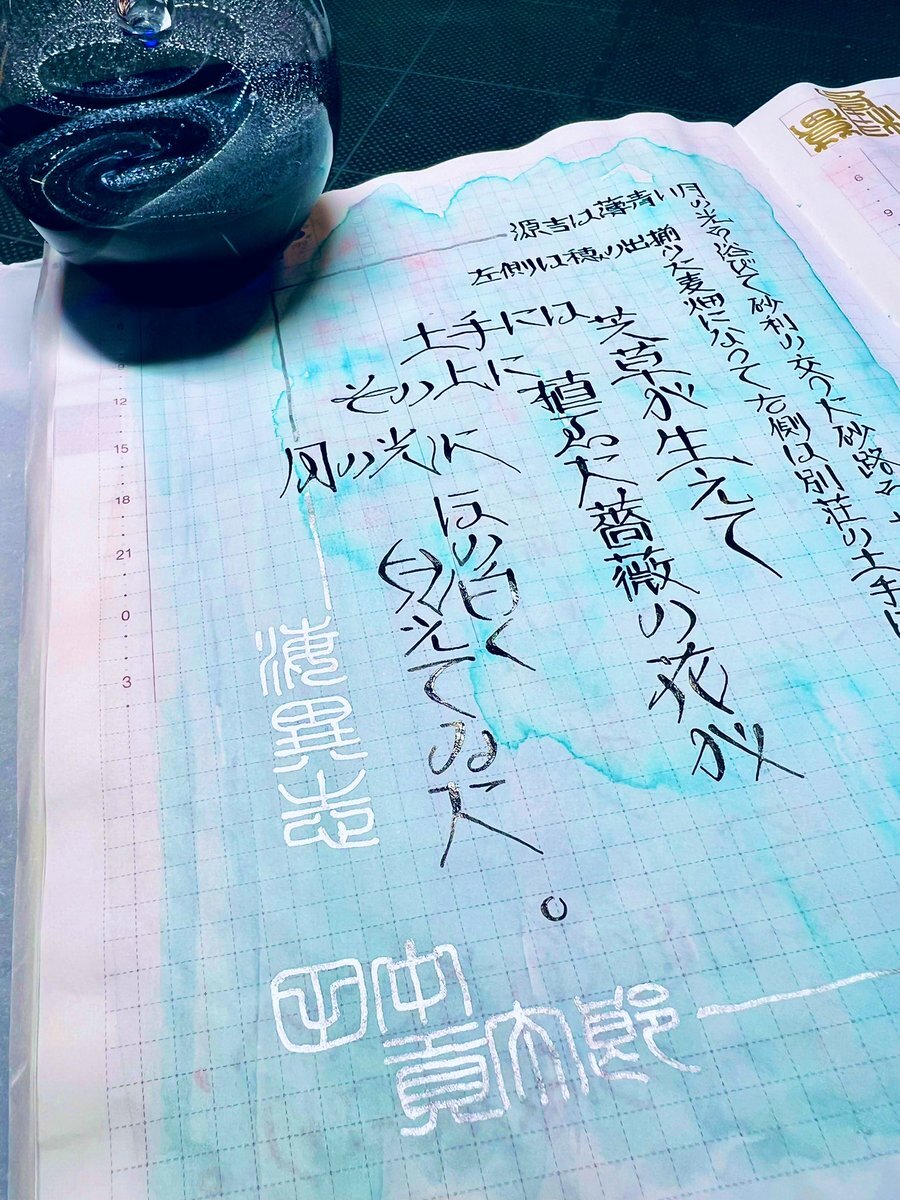 源吉は薄青い月の光を浴びて砂利の交つた砂路を
左側は穂の出揃つた麦畑になつて右側は別荘の土手に
土手には芝草が生えて
その上に植ゑた薔薇の花が
月の光にほの白く見えてゐた。
海異志
田中貢太郎
6
9
12
15
18
21
0
3